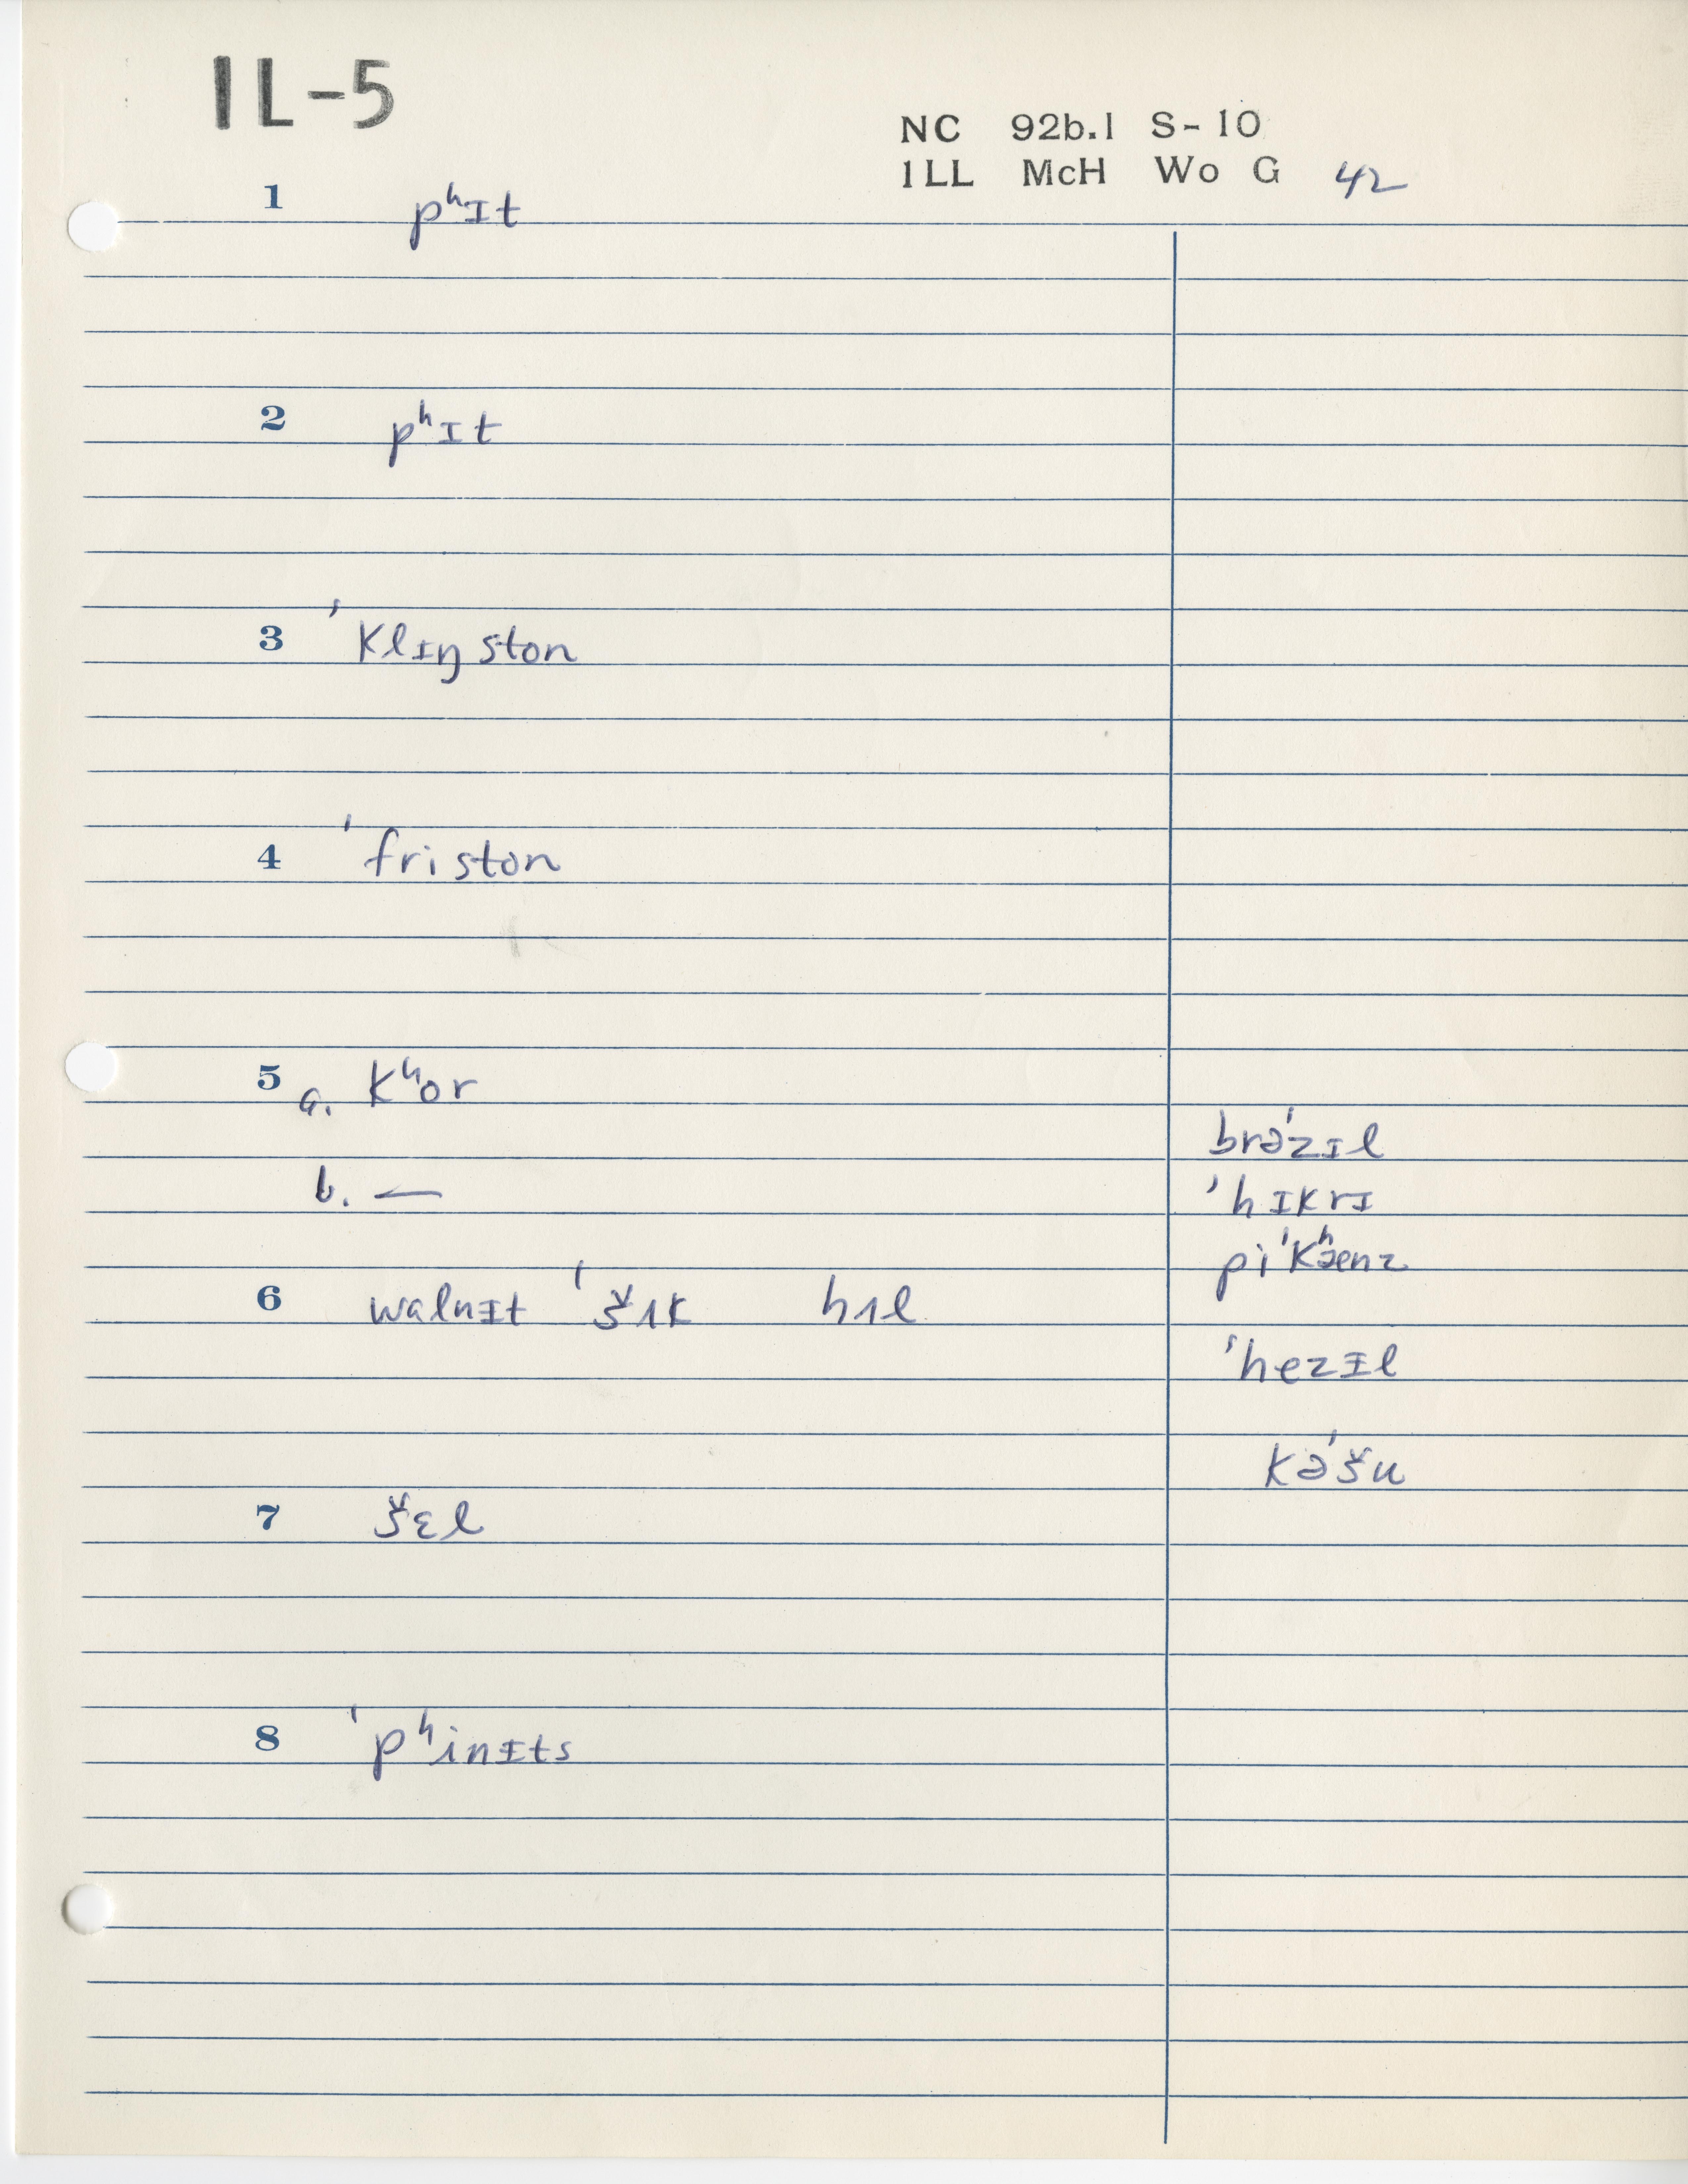 IL-5
NC 92b.1 S-10
ILL McH Wo G 42
1 pʰɪt
2 pʰɪt
3 ˈklɪŋston
4 ˈfriston
5 a. kʰor
brəˈzɪl
b. —
ˈhɪkrɪ
piˈkʰænz
6 walnɪt ˈšʌk hʌl
ˈhezɪl
kəˈšu
7 šɛl
8 ˈpʰinɪts